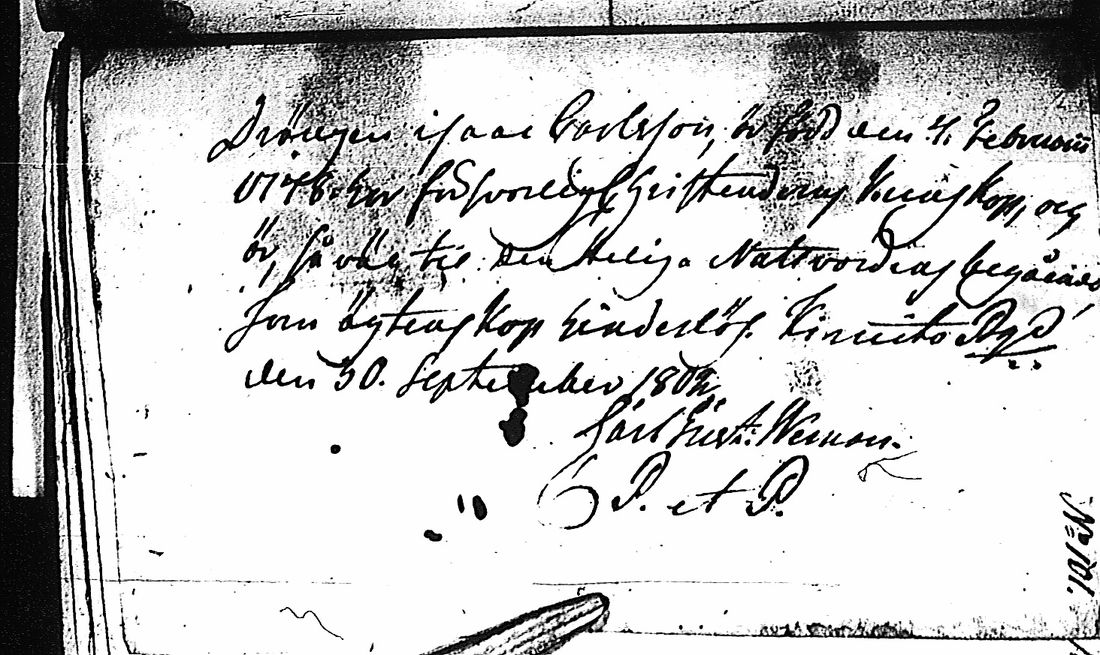 Drängen isaac Carlsson, är född den 4. Februarii
1778. har försvarlig Christendoms Kunskap, och
är, så väl til den Heliga Nattvardens begående
som ägtenskap hinderlös. Kimito Pgd
den 30. September 1802,
Carl Gust: Weman.
P. et P.
N=101.